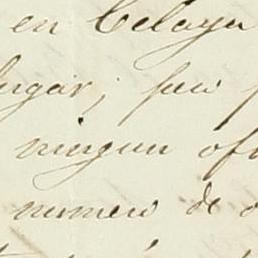 en Celaya
lugar; pero
ningun ofi
numero de